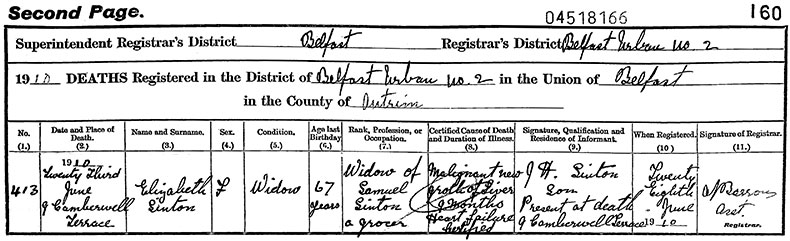 Second Page. 04518166 160
Superintendent Registrar's District Belfast Registrar's District Belfast Urban no. 2
1910 DEATHS Registered in the District of Belfast Urban no. 2 in the Union of Belfast
in the County of Antrim
No. (1.) Date and Place of Death. (2.) Name and Surname. (3.) Sex. (4.) Condition. (5.) Age last Birthday (6.) Rank, Profession, or Occupation. (7.) Certified Cause of Death and Duration of Illness. (8.) Signature, Qualification and Residence of Informant. (9.) When Registered. (10.) Signature of Registrar. (11.)
413
1910
Twenty Third
June
9 Camberwell
Terrace
Elizabeth
Sinton
F
Widow
67
years
Widow of
Samuel
Sinton
a grocer
Malignant new
growth of Liver
9 months
Heart failure
Certified
J H. Sinton
Son
Present at death
9 Camberwell Terrace
Twenty
Eighth
June
1910
Asst.
Registrar.